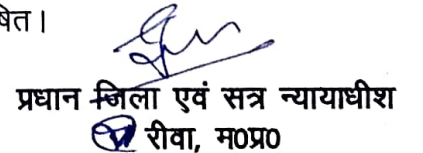 षित।
प्रधान जिला एवं सत्र न्यायाधीश
रीवा, म0प्र0